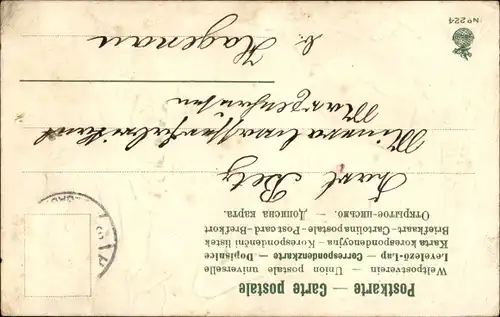 Postkarte — Carte postale
Weltpostverein — Union postale universelle
Levelező-Lap — Correspondenzkarte — Dopisnice
Karta korespondencyjna — Korespondenční lístek
Briefkaart — Cartolina postale — Post card — Brefkort
Открытое письмо. — Дописна карта.
Karl Betz
Mineralwasserfabrikant
Marzenhausen
b. Hagenau
No 224